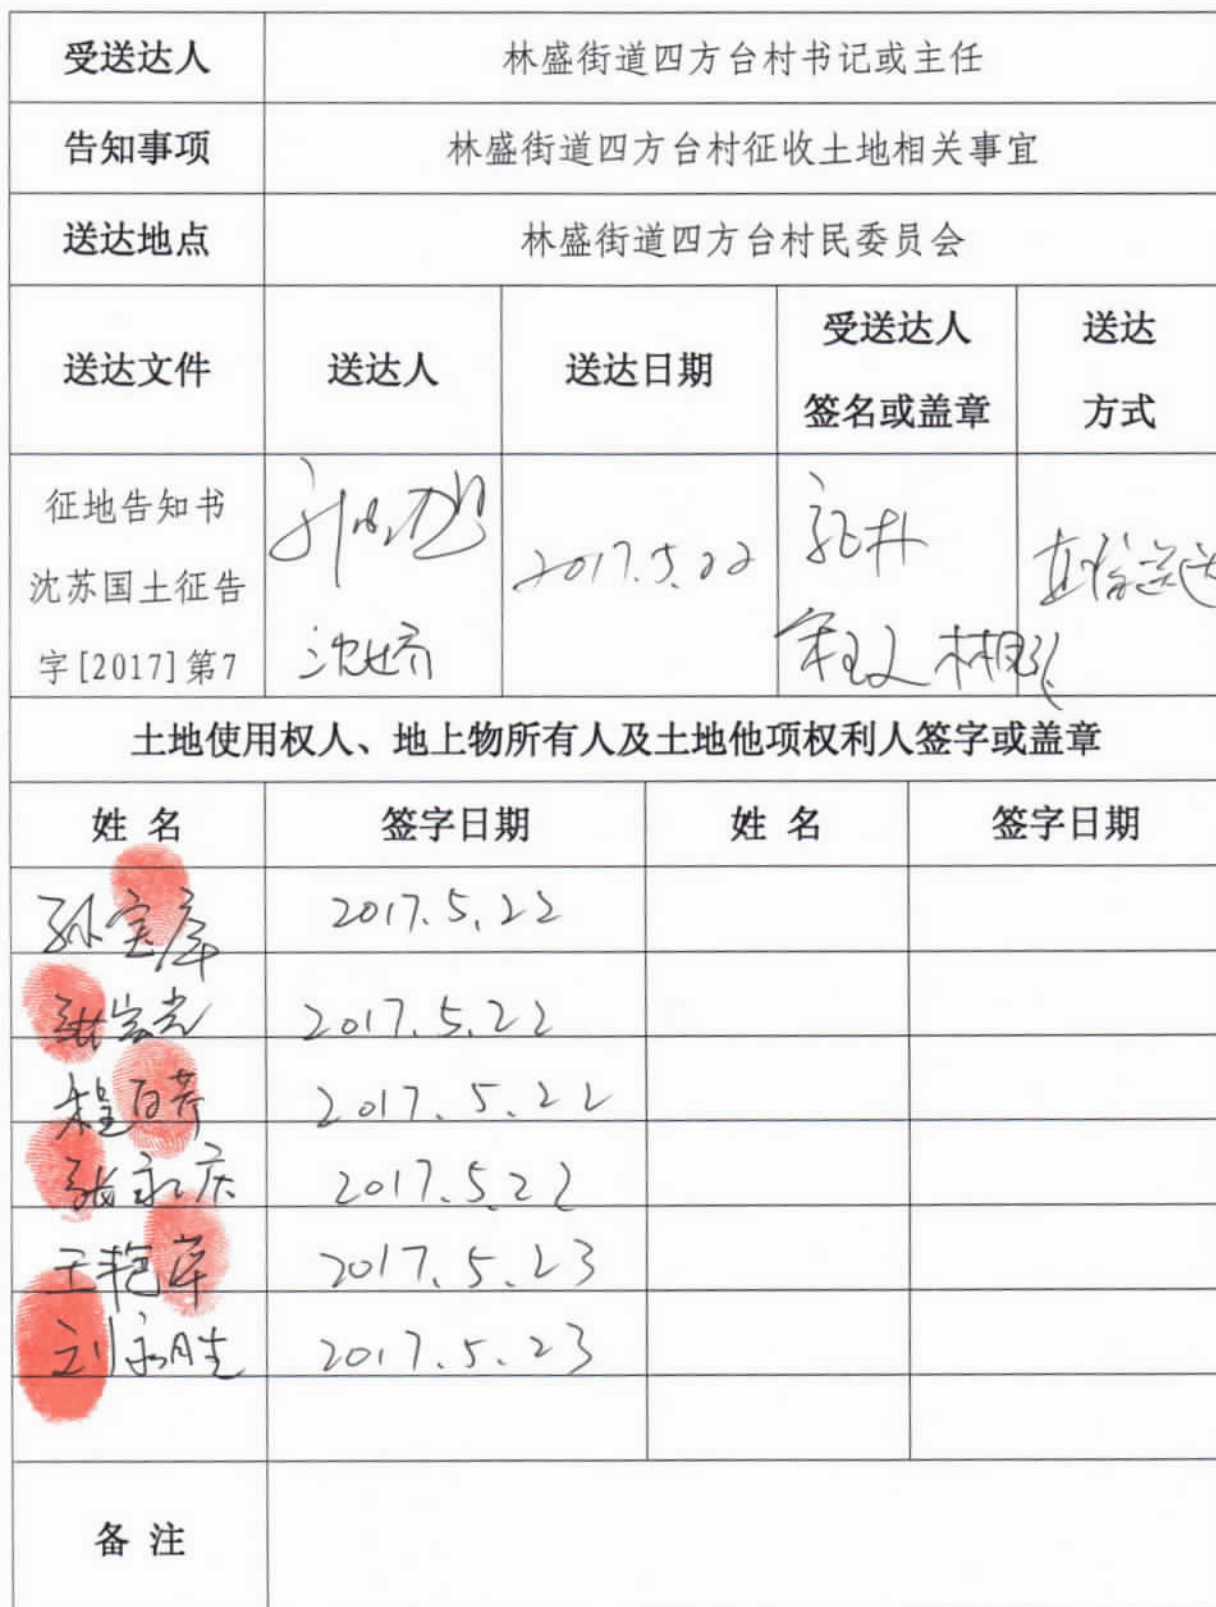 受送达人 林盛街道四方台村书记或主任
告知事项 林盛街道四方台村征收土地相关事宜
送达地点 林盛街道四方台村民委员会
送达文件 送达人 送达日期 受送达人 签名或盖章 送达 方式
征地告知书
沈苏国土征告
字[2017]第7
2017.5.22
送达
土地使用权人、地上物所有人及土地他项权利人签字或盖章
姓名 签字日期 姓名 签字日期
孙宝库 2017.5.22
张宏光 2017.5.22
程 2017.5.22
张永庆 2017.5.22
王艳萍 2017.5.23
刘永胜 2017.5.23
备注